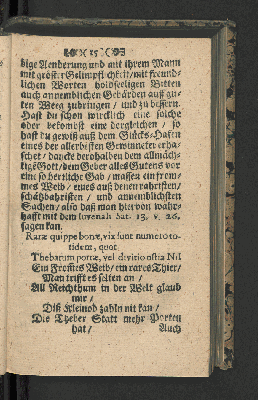 15
dige Aenderung und mit ihrem Mann
mit gröster Gelimpflichkeit / mit freund-
lichen Worten holdseeligen Bitten
auch annemblichen Gebärden auff guten
Weeg zubringen / und zu bessern.
Hast du schon würcklich eine solche
oder bekombst eine dergleichen / so
hast du gewiß auß dem Glücks-Hafen
eines der allerbesten Gewinneter erha-
schet / dancke derohalben dem allmäch-
tigē Gott / dem Geber alles Guten vor
eine so herrliche Gab / massen ein from-
mes Weib / eines auß denen rahristen /
schätzbahristen / und annemblichsten
Sachen / also daß man hiervon wahr-
hafft mit dem Iuvenali Sat. 13. v. 26.
sagen kan.
Raræ quippe bonæ, vix sunt numero to-
tidem, quot
Thebarum portæ, vel divitis ostia Nil
Ein Frommes Weib / ein rares Thier /
Man trifft es selten an /
All Reichthum in der Welt glaub
mir /
Diß Kleinod zahln nit kan /
Die Theber Statt mehr Porten
hat /
Auch